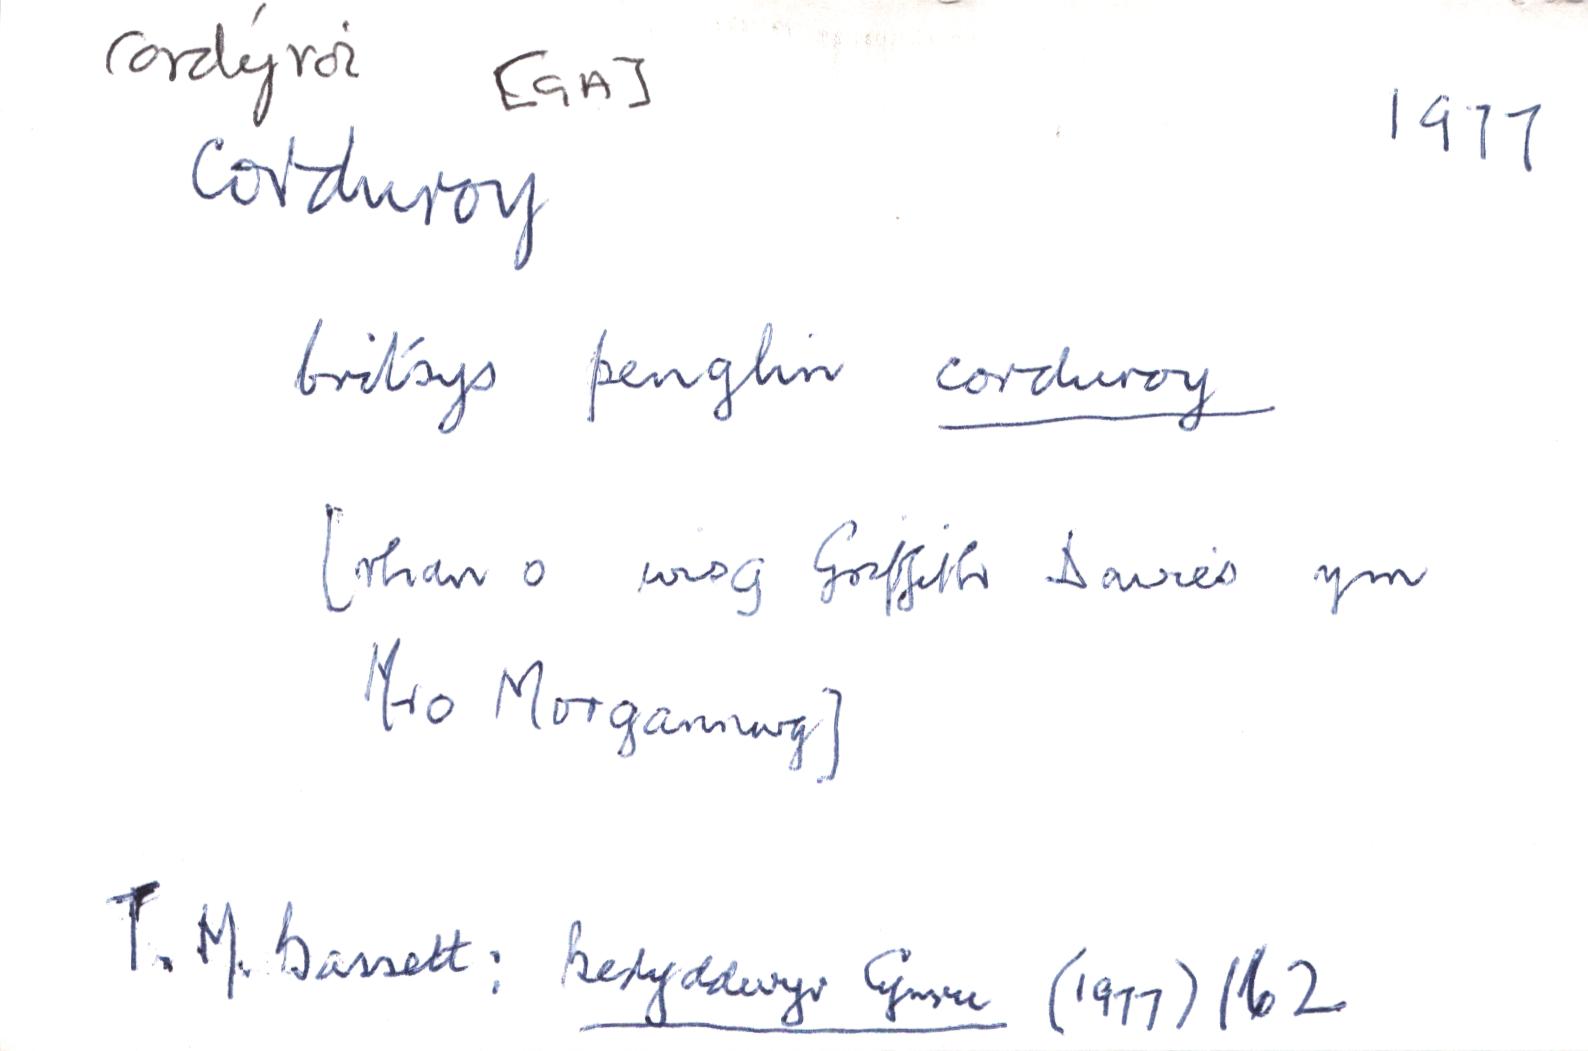 cordýroi [GA]
1977
Corduroy
britsys penglin corduroy
[rhan o wisg Griffith Davies ym
Mro Morgannwg]
T. M. Bassett: Bedyddwyr Cymru (1977) 162